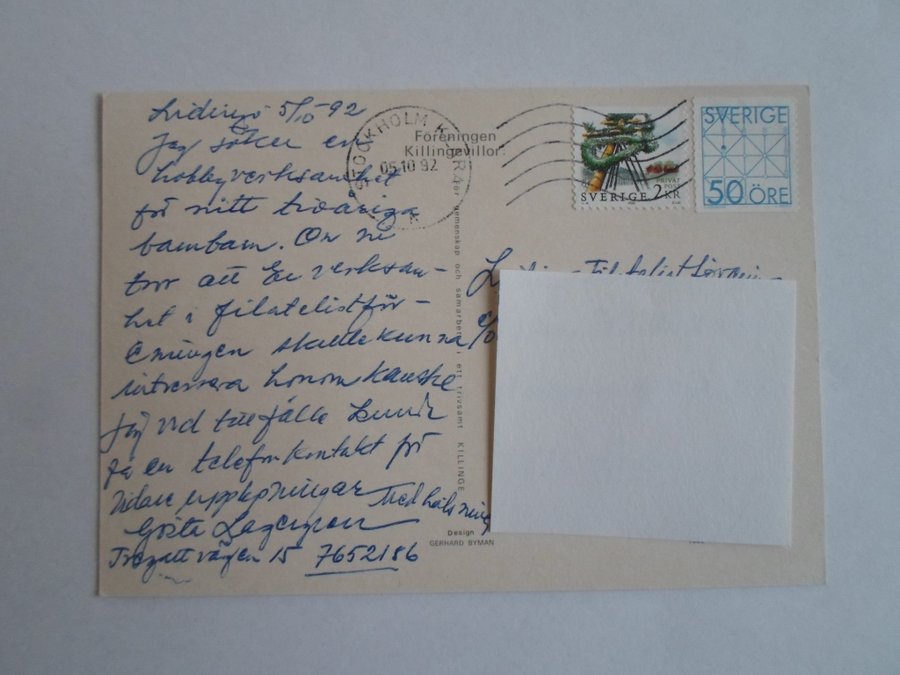 Lidingö 5/10 92
Jag söker en
hobbyverksamhet
för mitt tioåriga
barnbarn. Om ni
tror att Er verksam-
het i filatelistför-
eningen skulle kunna
intressera honom kanske
jag vid tillfälle kunde
få en telefonkontakt för
vidare upplysningar Med hälsning
Gösta
15 7652186
STOCKHOLM
05.10.92
Föreningen
Killingevillor:
för gemenskap och samarbete i ett trivsamt KILLINGE
Design
GERHARD BYMAN
PRIVAT
POST
SVERIGE 2 KR
SVERIGE
50 ÖRE
c/o